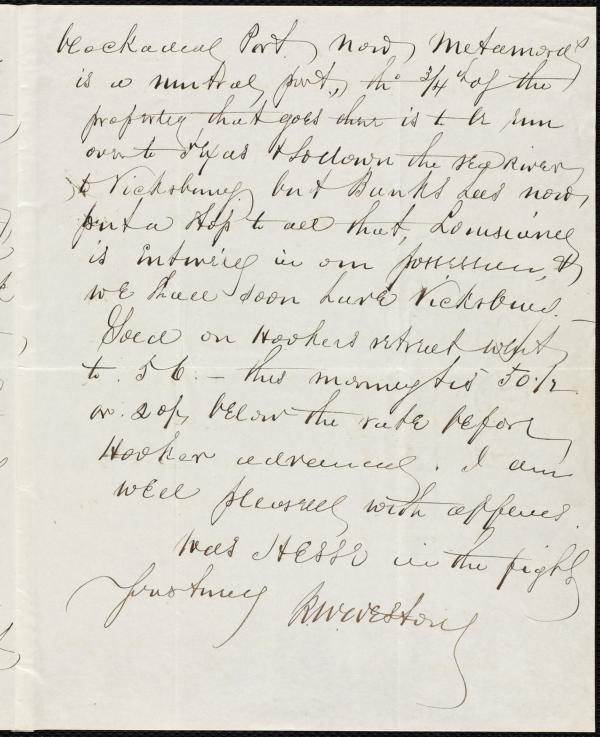 blockading Port, now, Metamoras
is a nutral port, the 3/4th of the
property that goes there is to be run
over to Texas & so down the red River
to Vicksburg but Banks has now,
put a stop to all that, Louisiana
is Entirely in our possession, &
we shall soon have Vicksburg. —
Gold on Hookers retreat went
to 56. — this morning tis 50 1/2
or 2 o/o below the rate before
Hooker advanced. I am
well pleased with affairs.
Was Hesse in the fight
yours truly R W Weston